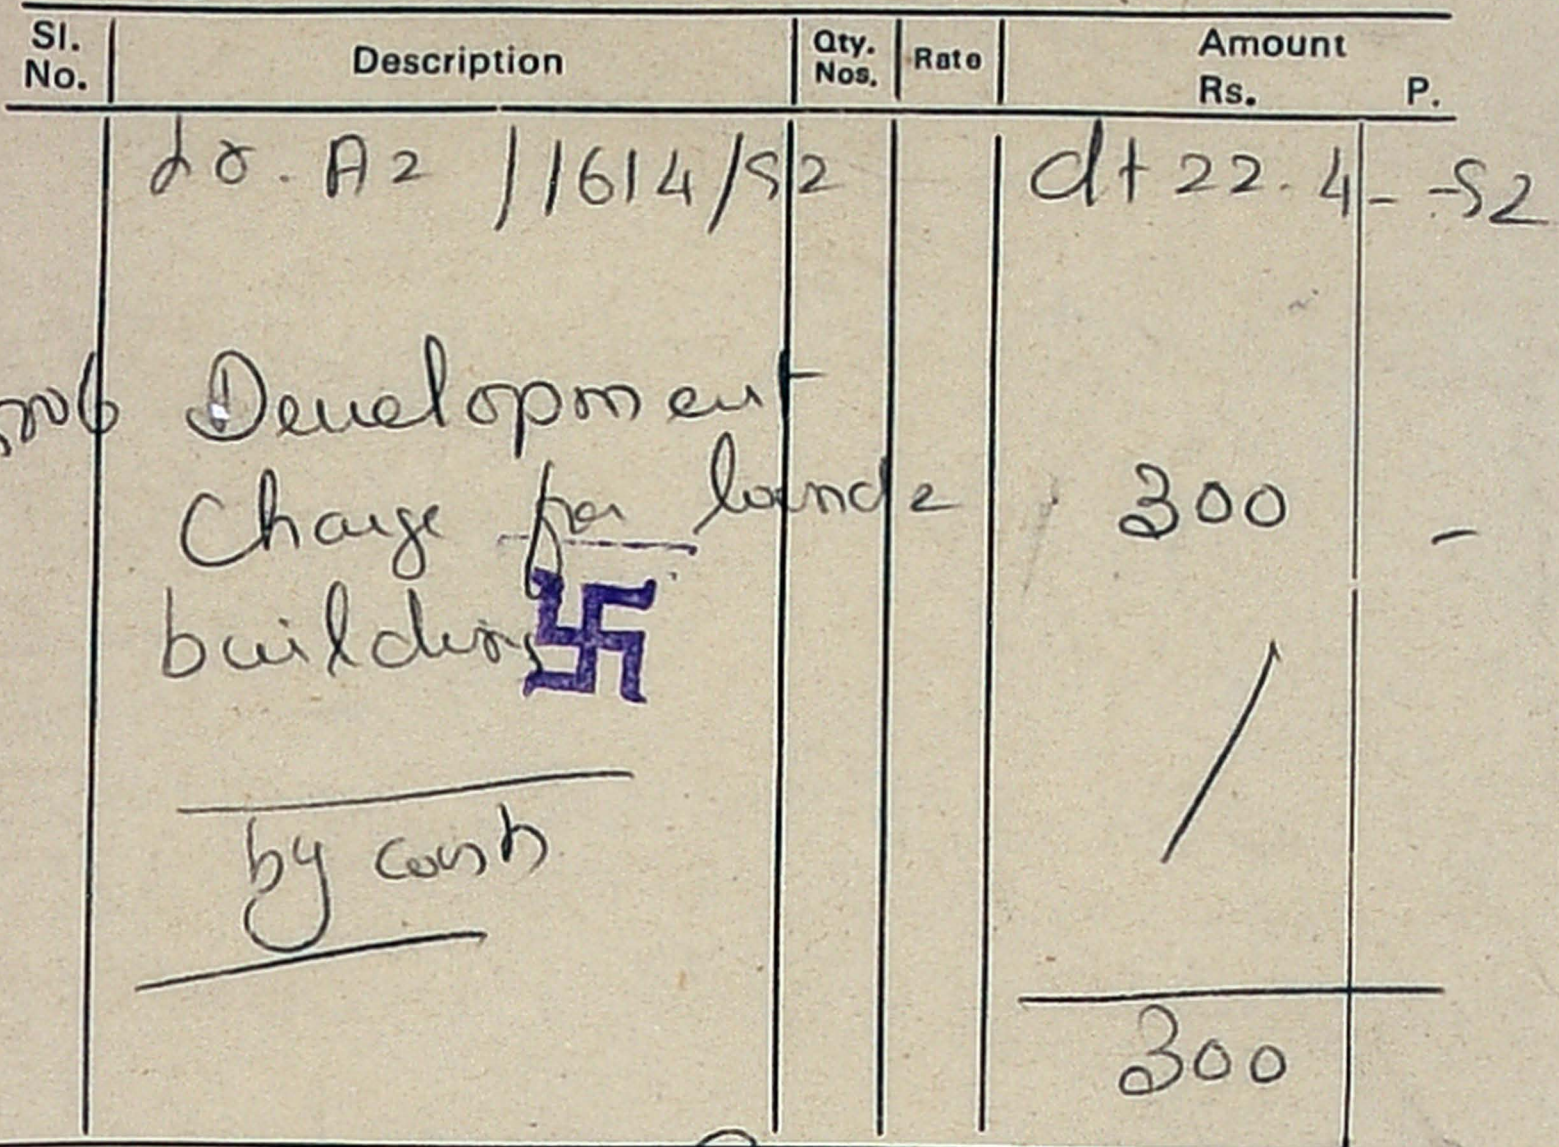 Sl. No. Description Qty. Nos. Rate Amount Rs. P.
A2 / 1614/92 dt 22.4-92
Development
Charge for land &
building
300 -
by cash
300